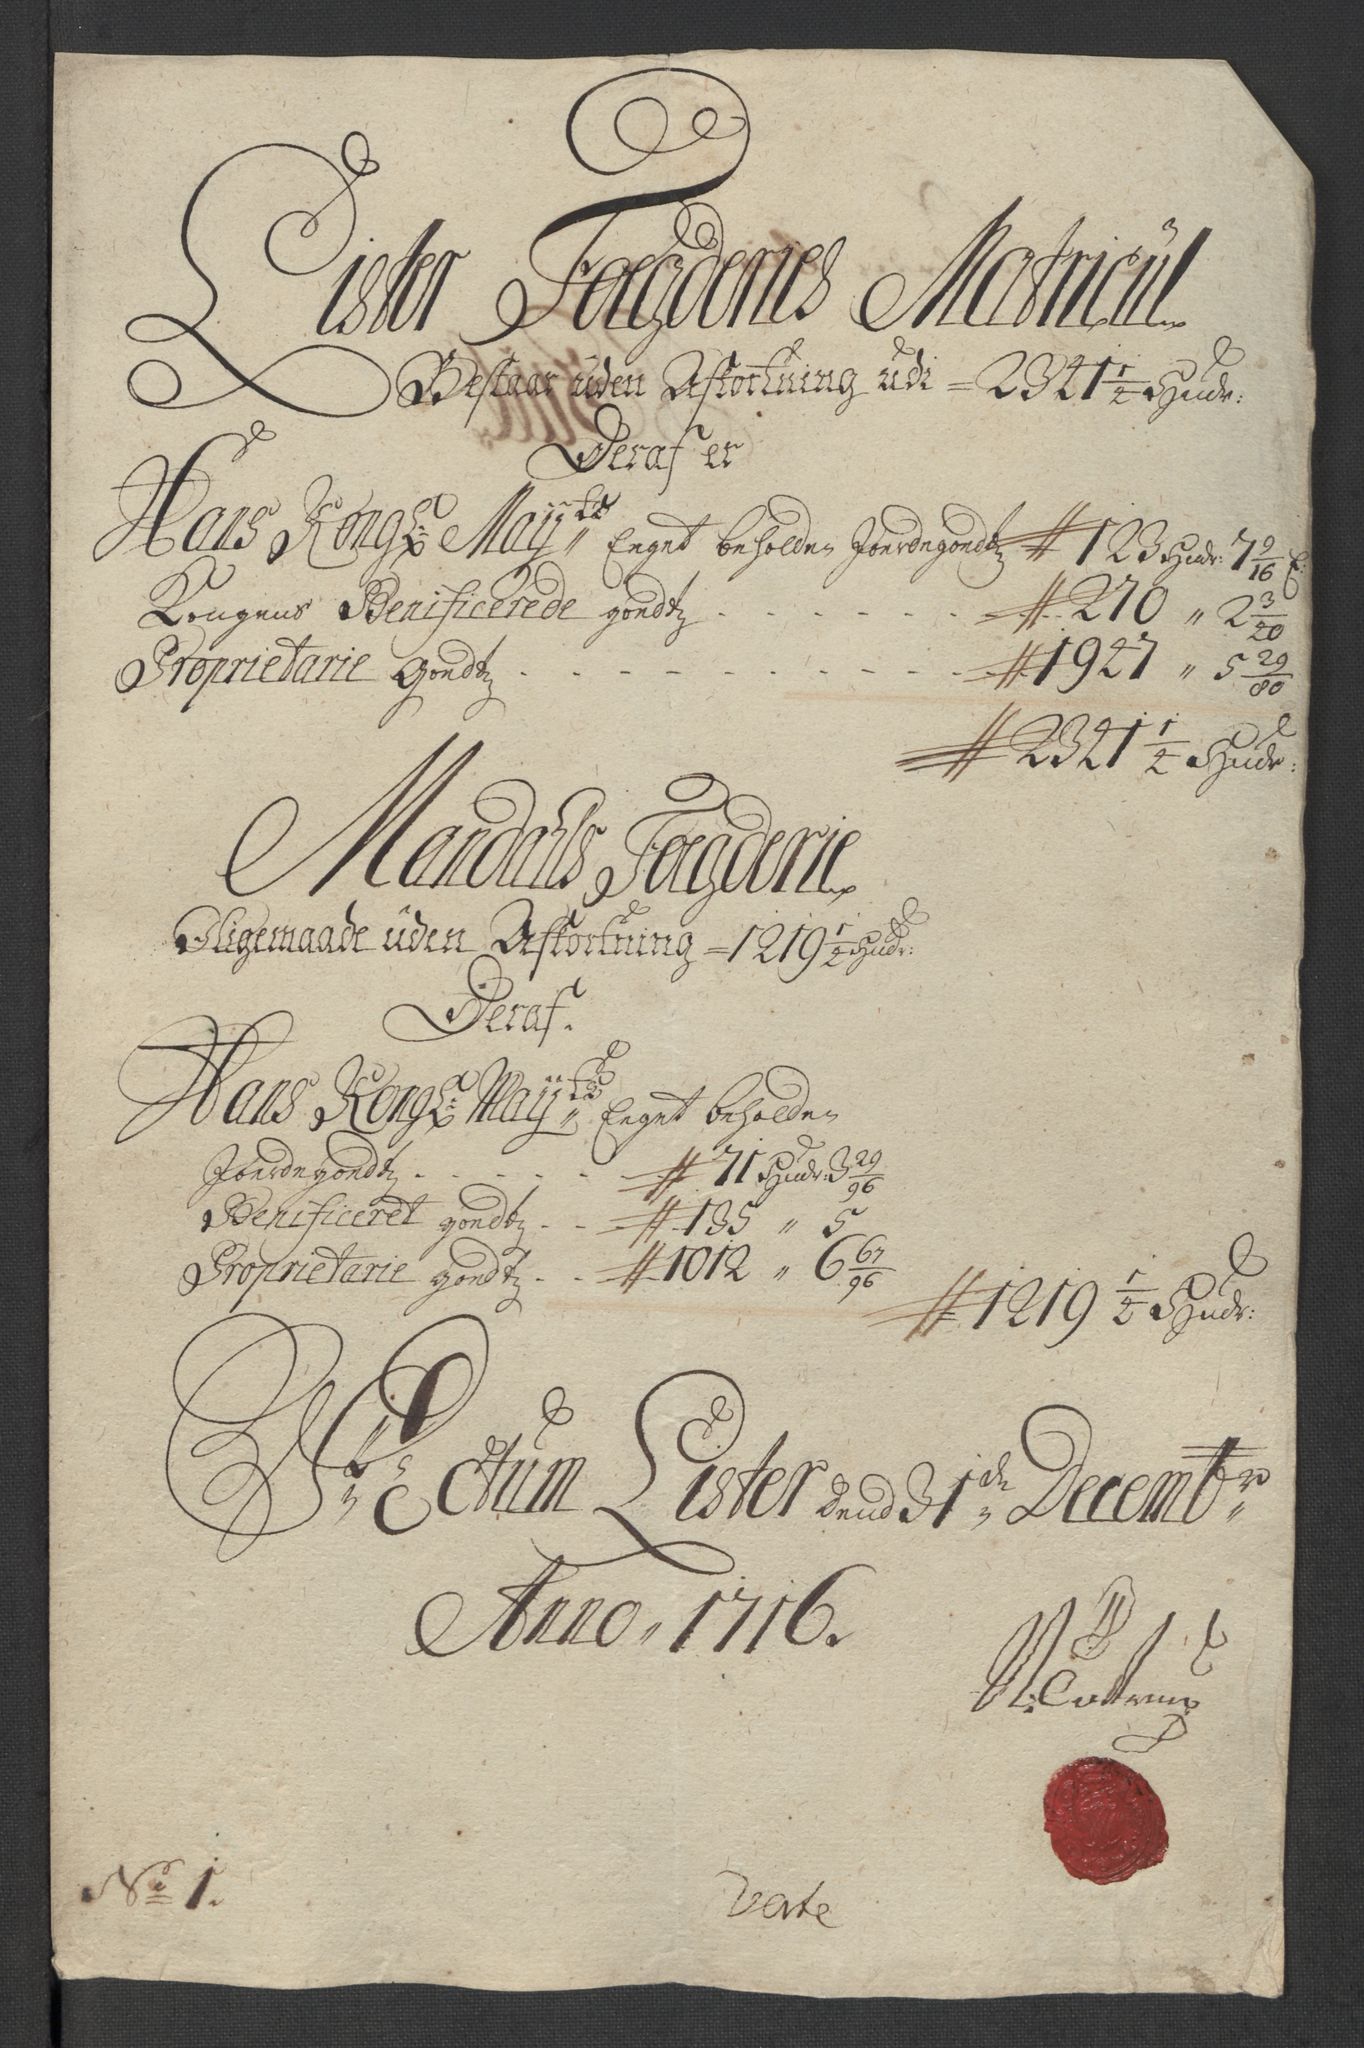 Lister Foegderies Matricul
Bestaar uden Afkortning udi = 2341 1/4 Hudr:
Deraf er
Hans Kongl: Mayts Eeget beholden Joerdegoedtz # 123 Hudr: 7 9/16 E:
Kongens Benificerede goedtz . - - - - - - # 290 " 2 3/40
Proprietarie goedtz . - - - - - - - - - - # 1927 " 5 29/80
# 2341 1/4 Hudr:
Mandahls Foegderie
Sligemaade uden Afkortning = 1219 1/4 Hudr:
Deraf.
Hans Kongl: Mayts Eeget beholden
Joerdegoedtz . - - - - - # 71 Hudr: 3 29/96
Benificeret goedtz . - - # 135 " 5
Proprietarie goedtz . - - # 1012 " 6 67/96
# 1219 1/4 Hudr:
Lister dend 31de Decembr
Anno 1716.
No 1.
Verte